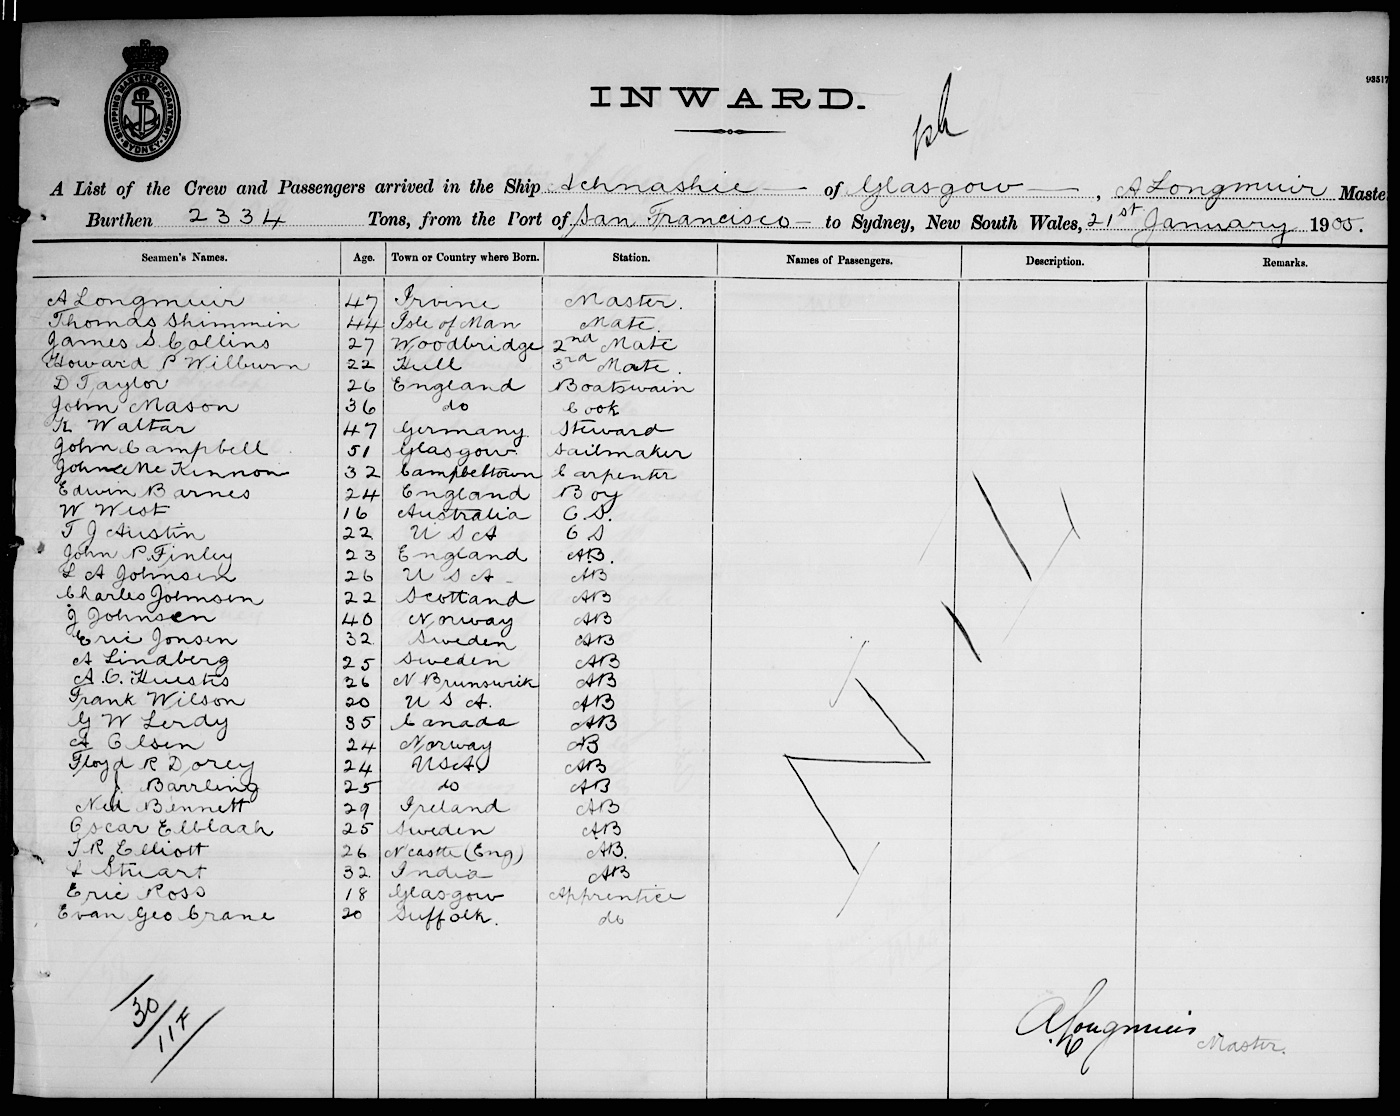 93517
SHIPPING MASTERS DEPARTMENT
SYDNEY
INWARD.
A List of the Crew and Passengers arrived in the Ship of Glasgow, A Longmuir Master
Burthen 2334 Tons, from the Port of San Francisco to Sydney, New South Wales, 21st January 1900.
Seamen's Names. Age. Town or Country where Born. Station. Names of Passengers. Description. Remarks.
A Longmuir 47 Irvine Master.
Thomas Shimmin 44 Isle of Man Mate.
James S. Collins 27 Woodbridge 2nd Mate
Howard P Wilburn 22 Hull 3rd Mate.
D Taylor 26 England Boatswain
John Mason 36 do Cook
Waltar 47 Germany. Steward
John Campbell 51 Glasgow. Sailmaker
John McKinnon 32 Campbeltown Carpenter
Edwin Barnes 24 England Boy
W West 16 Australia O.S.
T J Austin 22 U S A O S
John P. Finley 23 England A.B.
L A Johnsen 26 U S A AB
Charles Johnson 22 Scotland AB
J Johnsen 40 Norway AB
Eric Jonsen 32 Sweden AB
A Lindberg 25 Sweden AB
A. C. Huestis 26 N Brunswick AB
Frank Wilson 20 U S A. AB
G W Lerdy 35 Canada AB
A Olsen 24 Norway AB
Floyd R Dorey 24 USA. AB
J. Barrling 25 do AB
Ned Bennett 29 Ireland AB
Oscar Elblaah 25 Sweden AB
T R Elliott 26 Ncastle (Eng) AB.
Stuart 32 India AB
Eric Ross 18 Glasgow Apprentice
Evan Geo Crane 20 Suffolk. do
30/117
A. Longmuir
Master.